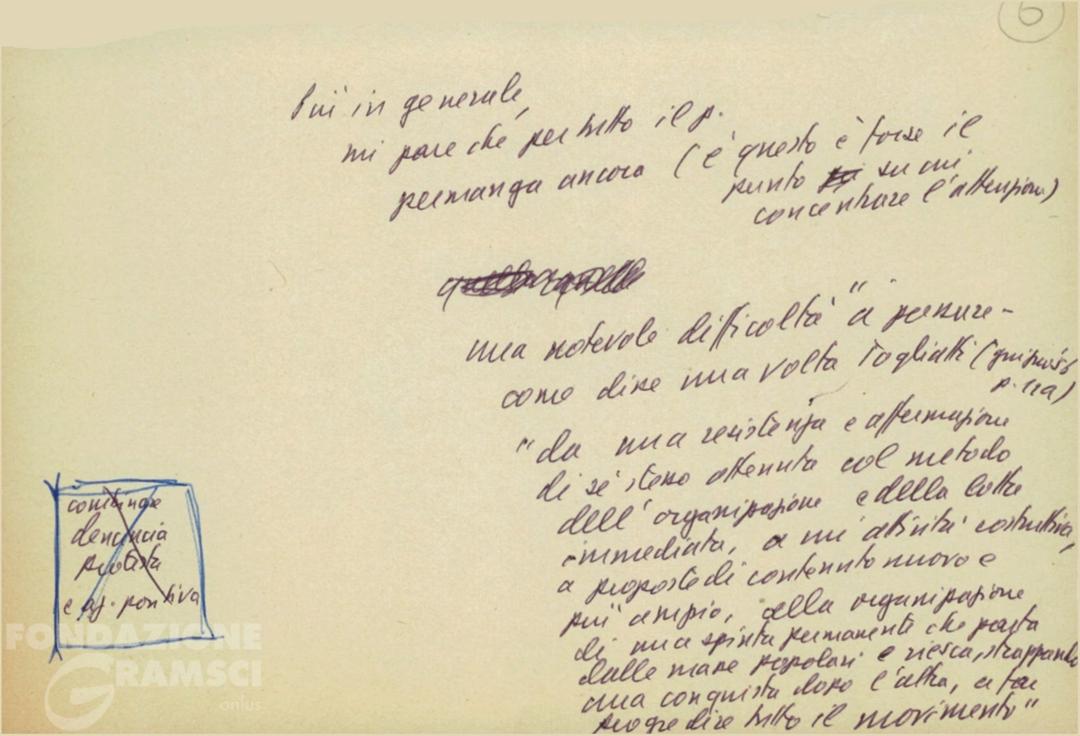 6
Più in generale,
mi pare che per tutto il p.
permanga ancora (e questo è forse il
punto su cui
concentrare l'attenzione)
una notevole difficoltà "a passare -
come disse una volta Togliatti (
p. 112)
"da una resistenza e affermazione
di sé stesso ottenuta col metodo
dell'organizzazione e della lotta
immediata, a un'attività costruttiva,
a proposte di contenuto nuovo e
più ampio, alla organizzazione
di una spinta permanente che parta
dalle masse popolari e riesca, strappando
una conquista dopo l'altra, a far
progredire tutto il movimento"
denuncia
protesta
e az. positiva
FONDAZIONE
GRAMSCI
onlus